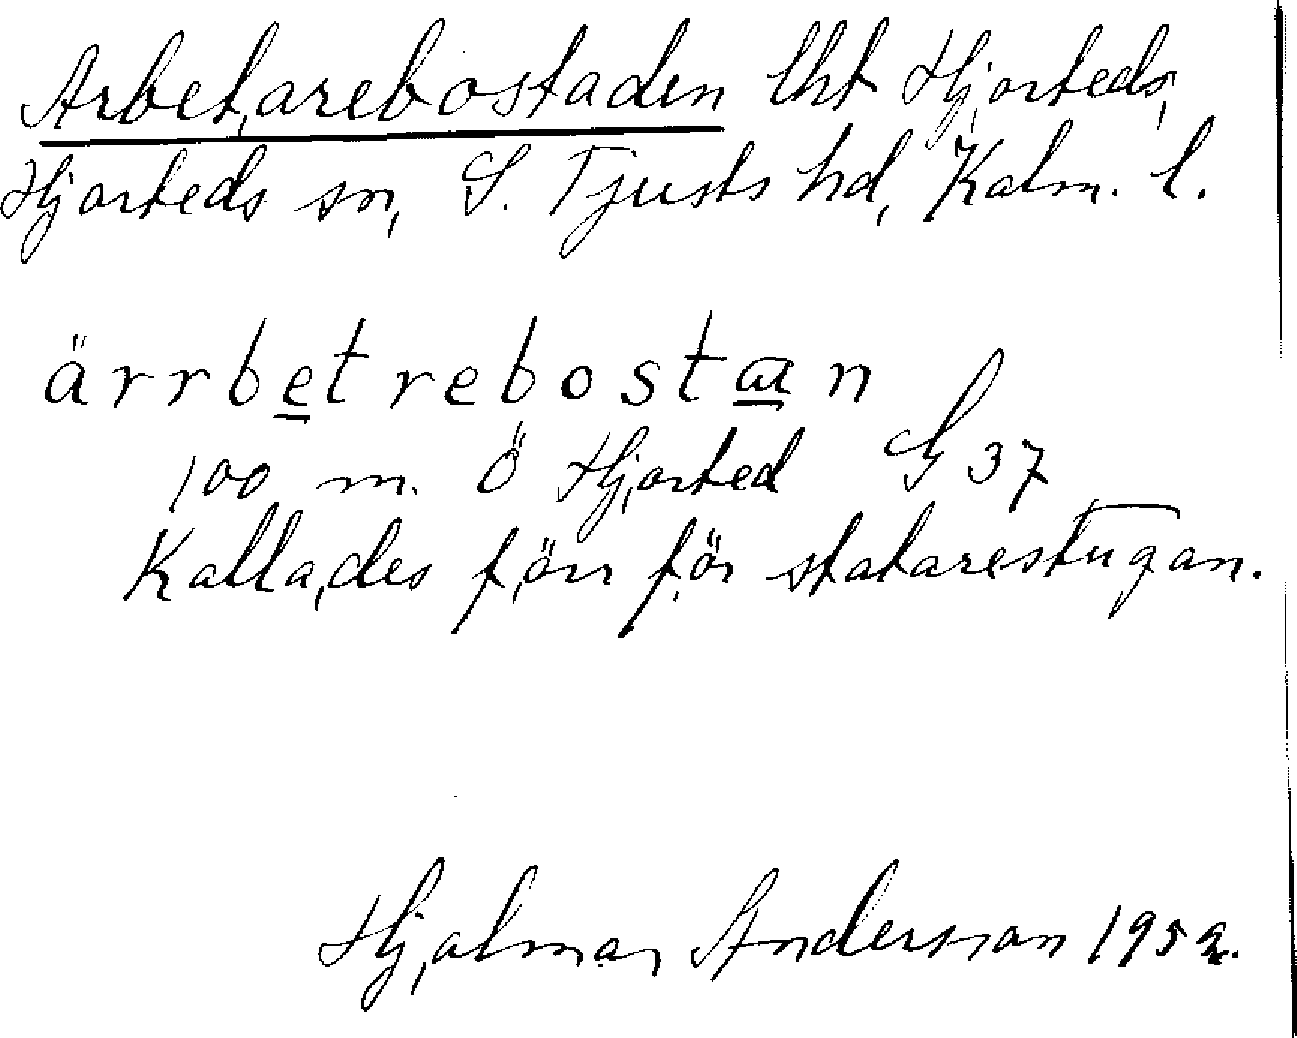 Arbetarebostaden lht Hjorteds,
Hjorteds sn, S. Tjusts hd, Kalm. l.
ärrbetrebostaan
100 m. Ö Hjorted G 37
Kallades förr för statarestugan.
Hjalmar Andersson 1952.